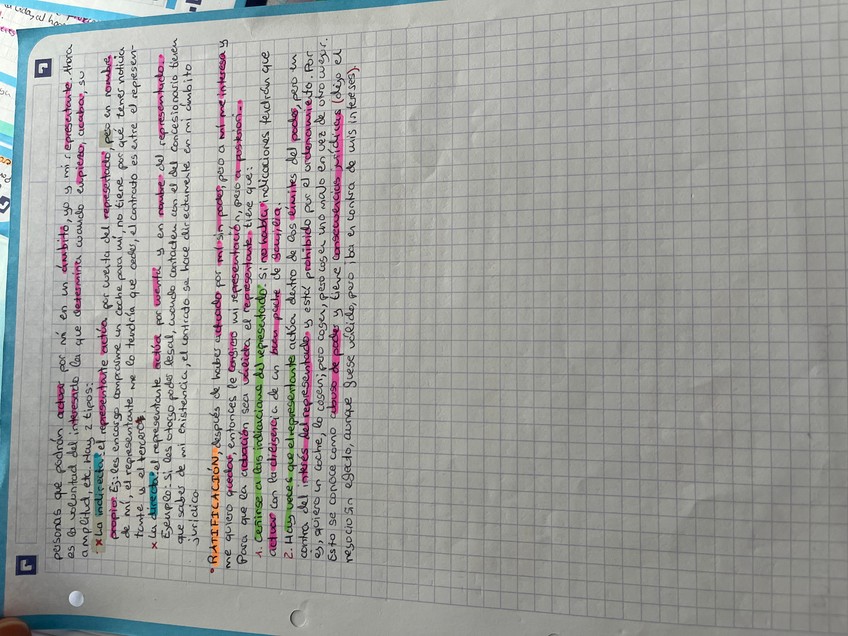 personas que podrán actuar por mí en un ámbito, yo y mi representante. Ahora
es la voluntad del interesado la que determina cuando empieza, acaba, su
amplitud, etc. Hay 2 tipos:
x La indirecta: el representante actúa por cuenta del representado, pero en nombre
propio. Ej: les encargo comprarme un coche para mí, no tiene por qué tener noticia
de mí, el representante me lo tendría que ceder, el contrato es entre el represen-
tante y el tercero.
x La directa: el representante actúa por cuenta y en nombre del representado.
Ejemplo: si les otorgo poder legal, cuando contacten con el del concesionario tienen
que saber de mi existencia, el contrato se hace directamente en mi ámbito
jurídico.
• RATIFICACIÓN, después de haber actuado por mí sin poder, pero a mí me interesa y
me quiero quedar, entonces le confiero mi representación, pero a posteriori.
Para que la actuación sea válida el representante tiene que:
1. Ceñirse a las indicaciones del representado. Si no había indicaciones tendrán que
actuar con la diligencia de un buen padre de familia.
2. Hay veces que el representante actúa dentro de los límites del poder, pero en
contra del interés del representado y está prohibido por el ordenamiento. Por
ej, quiero un coche, lo cogen, pero cogen uno malo en vez de otro mejor.
Esto se conoce como abuso de poder y tiene consecuencias jurídicas (dejo el
negocio sin efecto, aunque fuese válido, pero iba en contra de mis intereses).